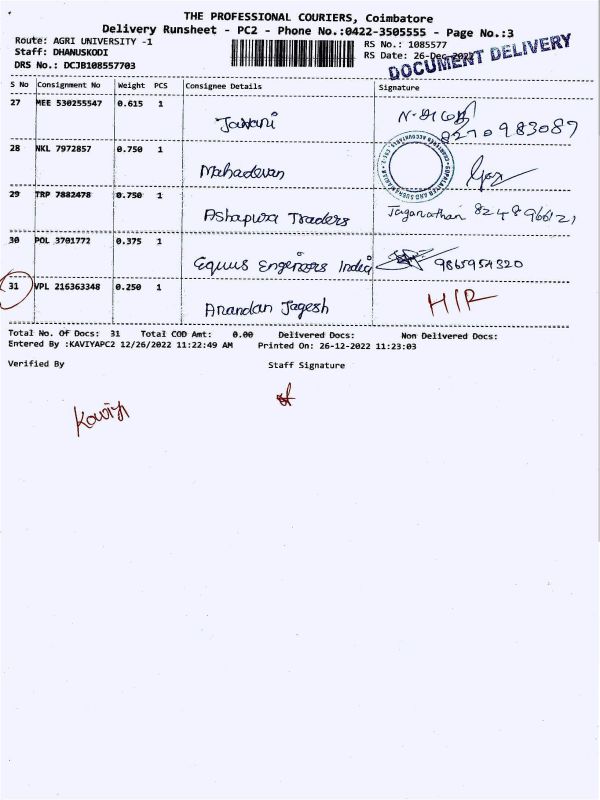 THE PROFESSIONAL COURIERS, Coimbatore
Delivery Runsheet - PC2 - Phone No.:0422-3505555 - Page No.:3
Route: AGRI UNIVERSITY -1
RS No.: 1085577
Staff: DHANUSKODI
RS Date: 26-Dec-2022
DRS No.: DCJB108557703
DOCUMENT DELIVERY
S No Consignment No Weight PCS Consignee Details Signature
27 MEE 530255547 0.615 1
8270983087
28 NKL 7972857 0.750 1 Mahadevan
29 TRP 7882478 0.750 1 Ashapura Traders Jaganathan 8248966121
30 POL 3701772 0.375 1 Equus Engineers India 9865954320
31 VPL 216363348 0.250 1 Anandan Jagesh H/R
Total No. Of Docs: 31 Total COD Amt: 0.00 Delivered Docs: Non Delivered Docs:
Entered By :KAVIYAPC2 12/26/2022 11:22:49 AM Printed On: 26-12-2022 11:23:03
Verified By Staff Signature